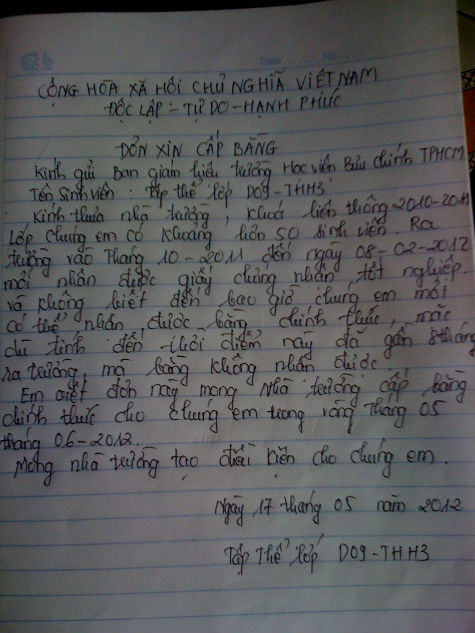 CỘNG HÒA XÃ HỘI CHỦ NGHĨA VIỆT NAM
ĐỘC LẬP - TỰ DO - HẠNH PHÚC
ĐƠN XIN CẤP BẰNG
Kính gửi Ban giám hiệu trường Học viện Bưu chính TPHCM
Tên sinh viên: Tập thể lớp D09-THH3
Kính thưa nhà trường, khoá liên thông 2010-2011
Lớp chúng em có khoảng hơn 50 sinh viên. Ra
trường vào tháng 10-2011 đến ngày 08-02-2012
mới nhận được giấy chứng nhận tốt nghiệp
và không biết đến bao giờ chúng em mới
có thể nhận được bằng chính thức, mặc
dù tính đến thời điểm này đã gần 8 tháng
ra trường, mà bằng không nhận được.
Em viết đơn này mong nhà trường cấp bằng
chính thức cho chúng em trong vòng tháng 05
tháng 06-2012.
Mong nhà trường tạo điều kiện cho chúng em.
Ngày 17 tháng 05 năm 2012
Tập thể lớp D09-THH3